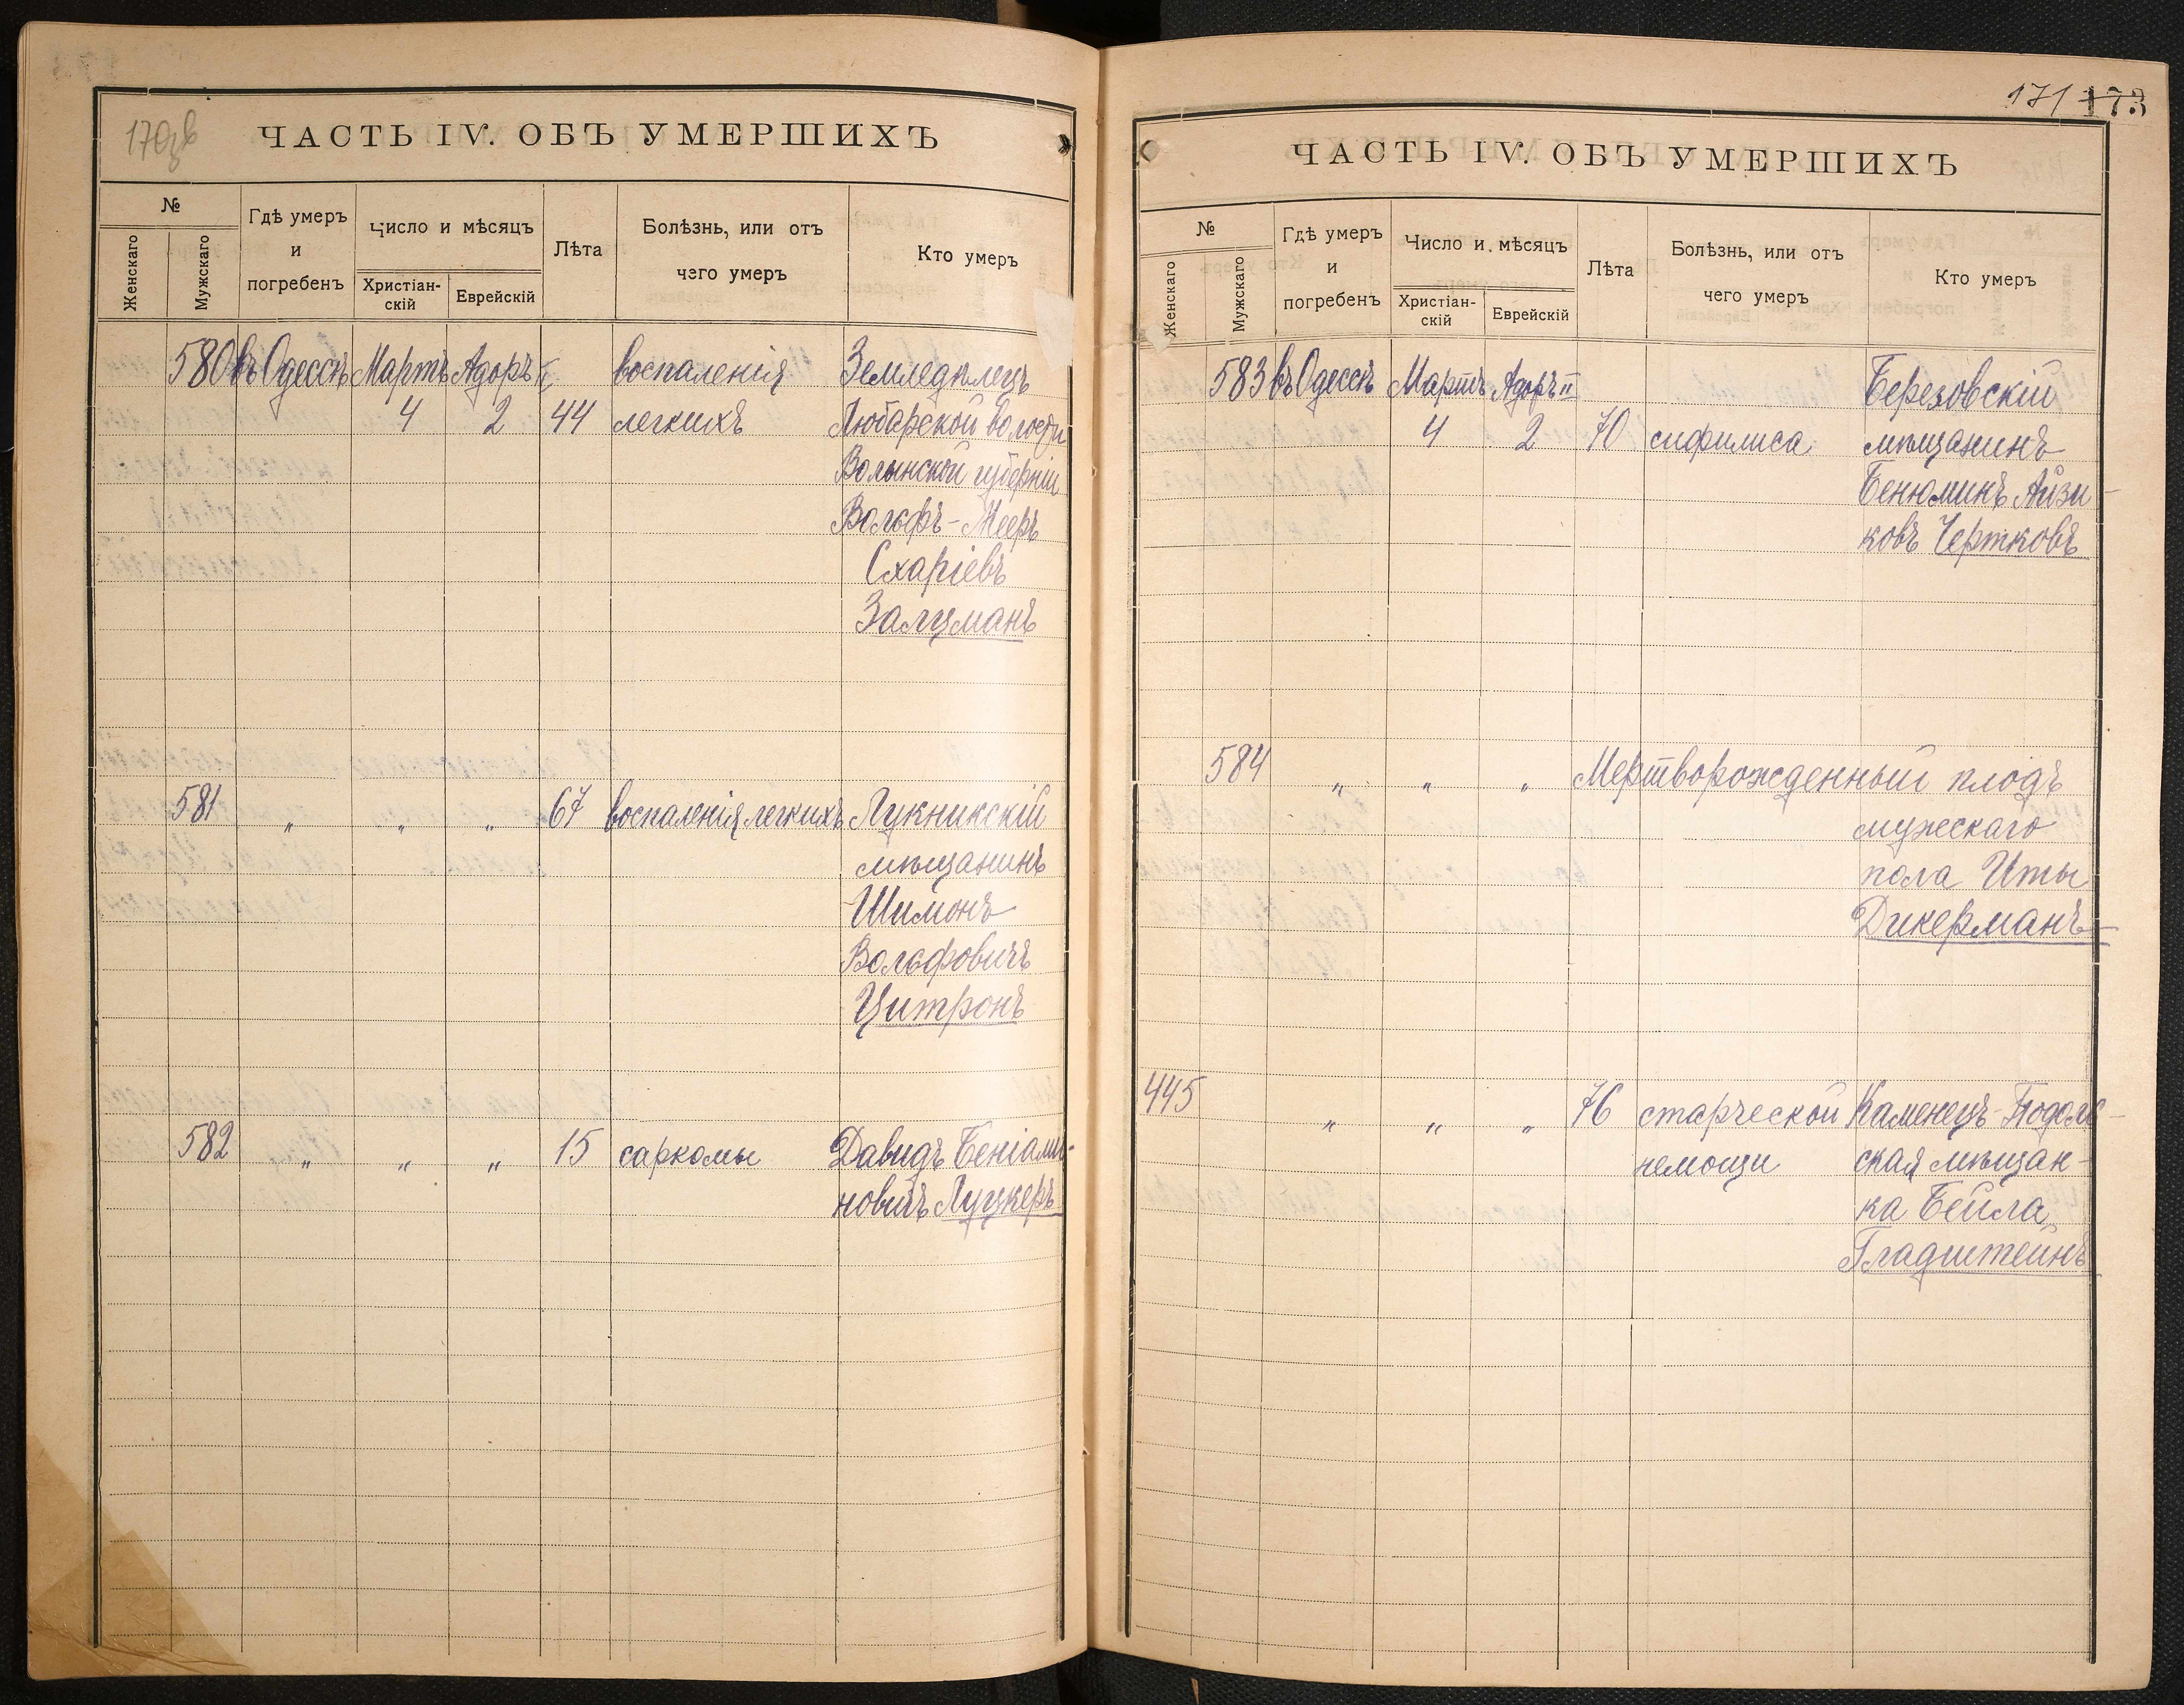 170об
ЧАСТЬ IV. ОБЪ УМЕРШИХЪ
№
Женскаго
Мужскаго
Гдѣ умеръ
и
погребенъ
Число и мѣсяцъ
Христіан-
скій
Еврейскій
Лѣта
Болѣзнь, или отъ
чего умеръ
Кто умеръ
580 въ Одессѣ Мартъ Адоръ II воспаленія Земледѣлецъ
4 2 44 легкихъ Любарской волости
Волынской губерніи
Вольфъ-Мееръ
Схаріевъ
Залцманъ
581 „ „ „ 67 воспаленія легкихъ Лукникскій
мѣщанинъ
Шимонъ
Вольфовичъ
Цитронъ
582 „ „ „ 15 саркомы Давидъ Беніами-
новичъ Луцкеръ
171 173
ЧАСТЬ IV. ОБЪ УМЕРШИХЪ
№
Женскаго
Мужскаго
Гдѣ умеръ
и
погребенъ
Число и мѣсяцъ
Христіан-
скій
Еврейскій
Лѣта
Болѣзнь, или отъ
чего умеръ
Кто умеръ
583 въ Одессѣ Мартъ Адоръ II Березовскій
4 2 70 сифилиса мѣщанинъ
Бенюминъ Айзи-
ковъ Чертковъ
584 „ „ „ Мертворожденный плодъ
мужескаго
пола Иты
Дикерманъ
445 „ „ „ 76 старческой Каменецъ-Подоль-
немощи ская мѣщан-
ка Бейла
Гладштейнъ